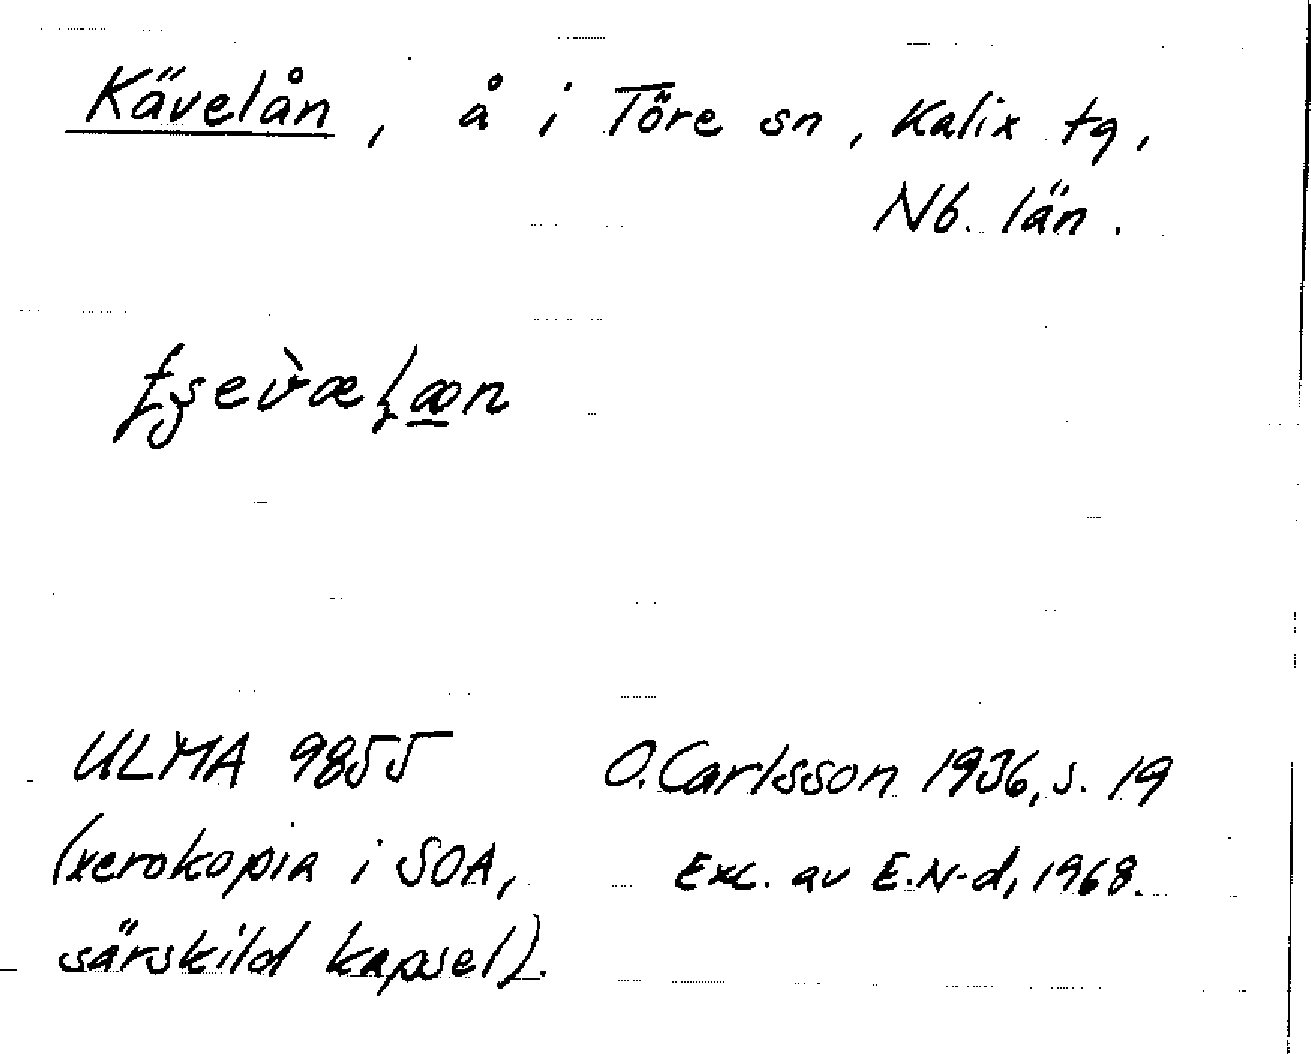 Kävelån, å i Töre sn, Kalix tg,
Nb. län.
ULMA 9855
(xerokopia i SOA,
särskild kapsel).
O. Carlsson 1936, s. 19
Exc. av E.N-d, 1968.